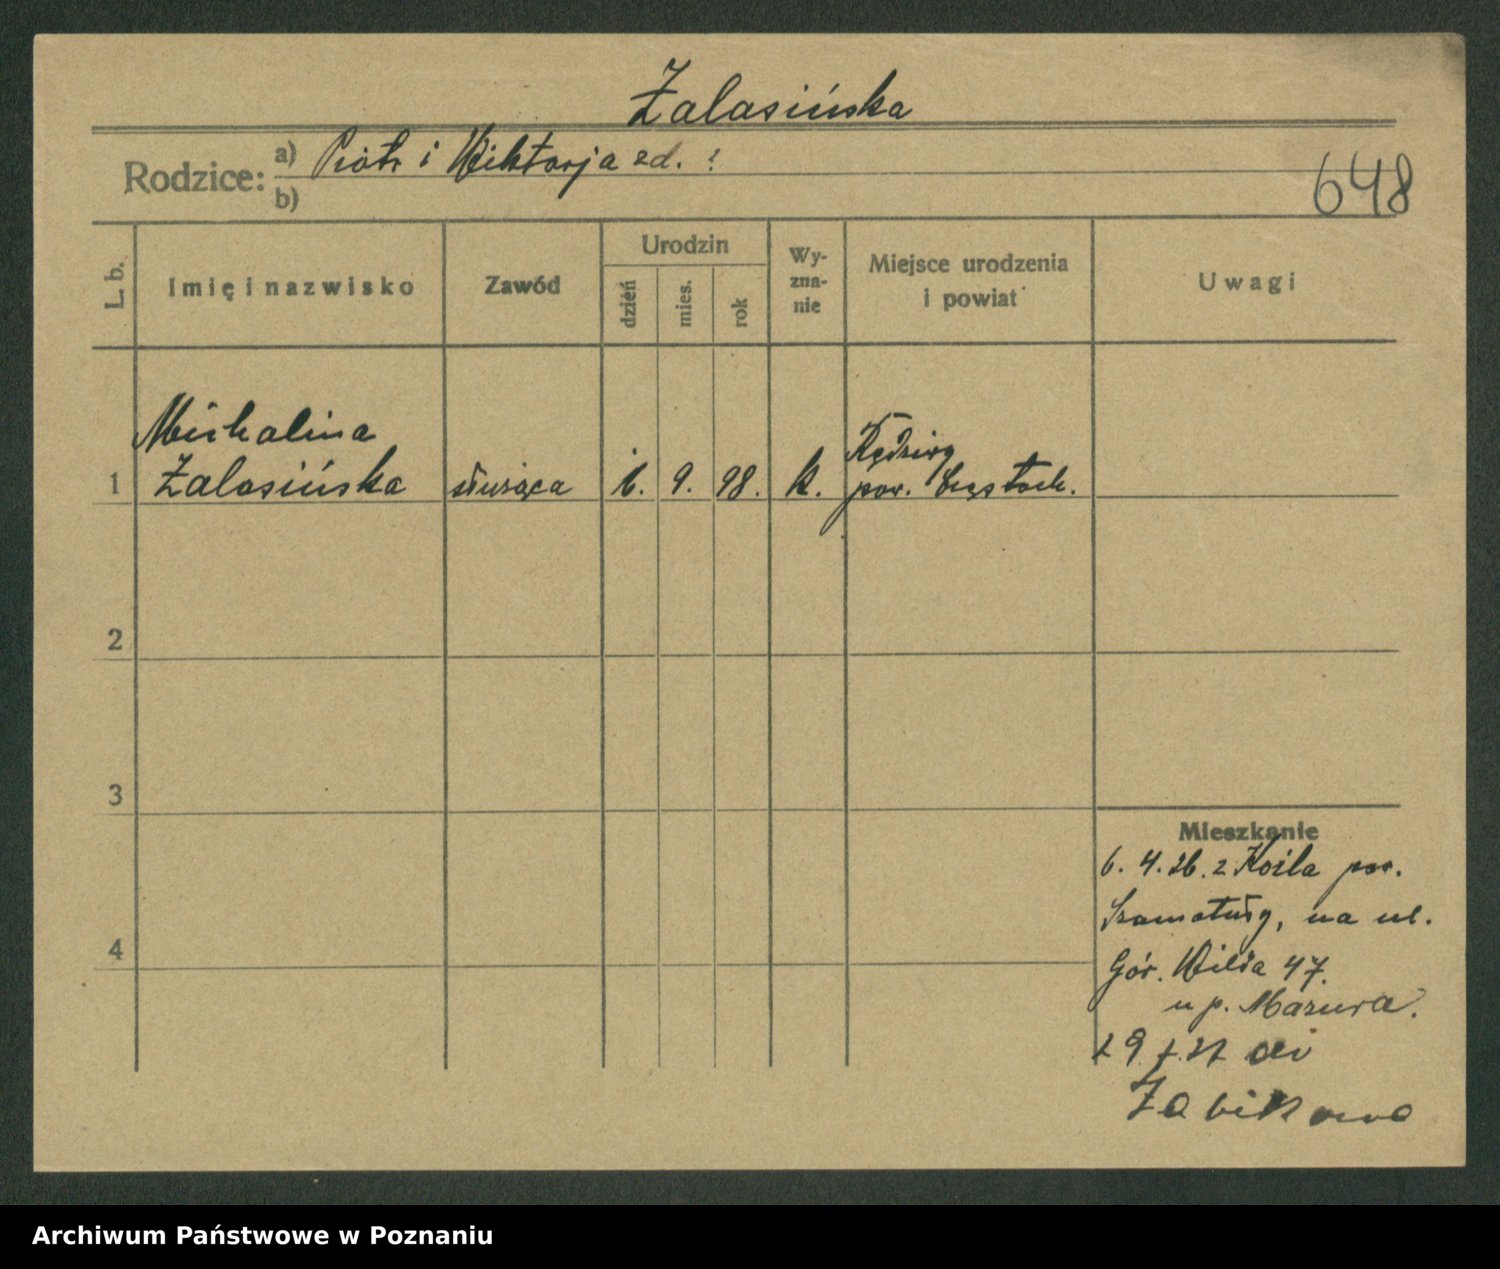 Zalasińska
Rodzice: a) Piotr i Wiktorja zd. ?
b)
648
L. b.
Imię i nazwisko
Zawód
Urodzin
dzień
mies.
rok
Wy-
zna-
nie
Miejsce urodzenia
i powiat
Uwagi
Michalina
1 Zalasińska służąca 6. 9. 98. k.
pow. Częstoch.
2
3
4
Mieszkanie
6. 4. 26. z Koźla pow.
Szamotuły, na ul.
Gór. Wilda 47.
u p. Mazura.
27 do
Żabikowo
Archiwum Państwowe w Poznaniu